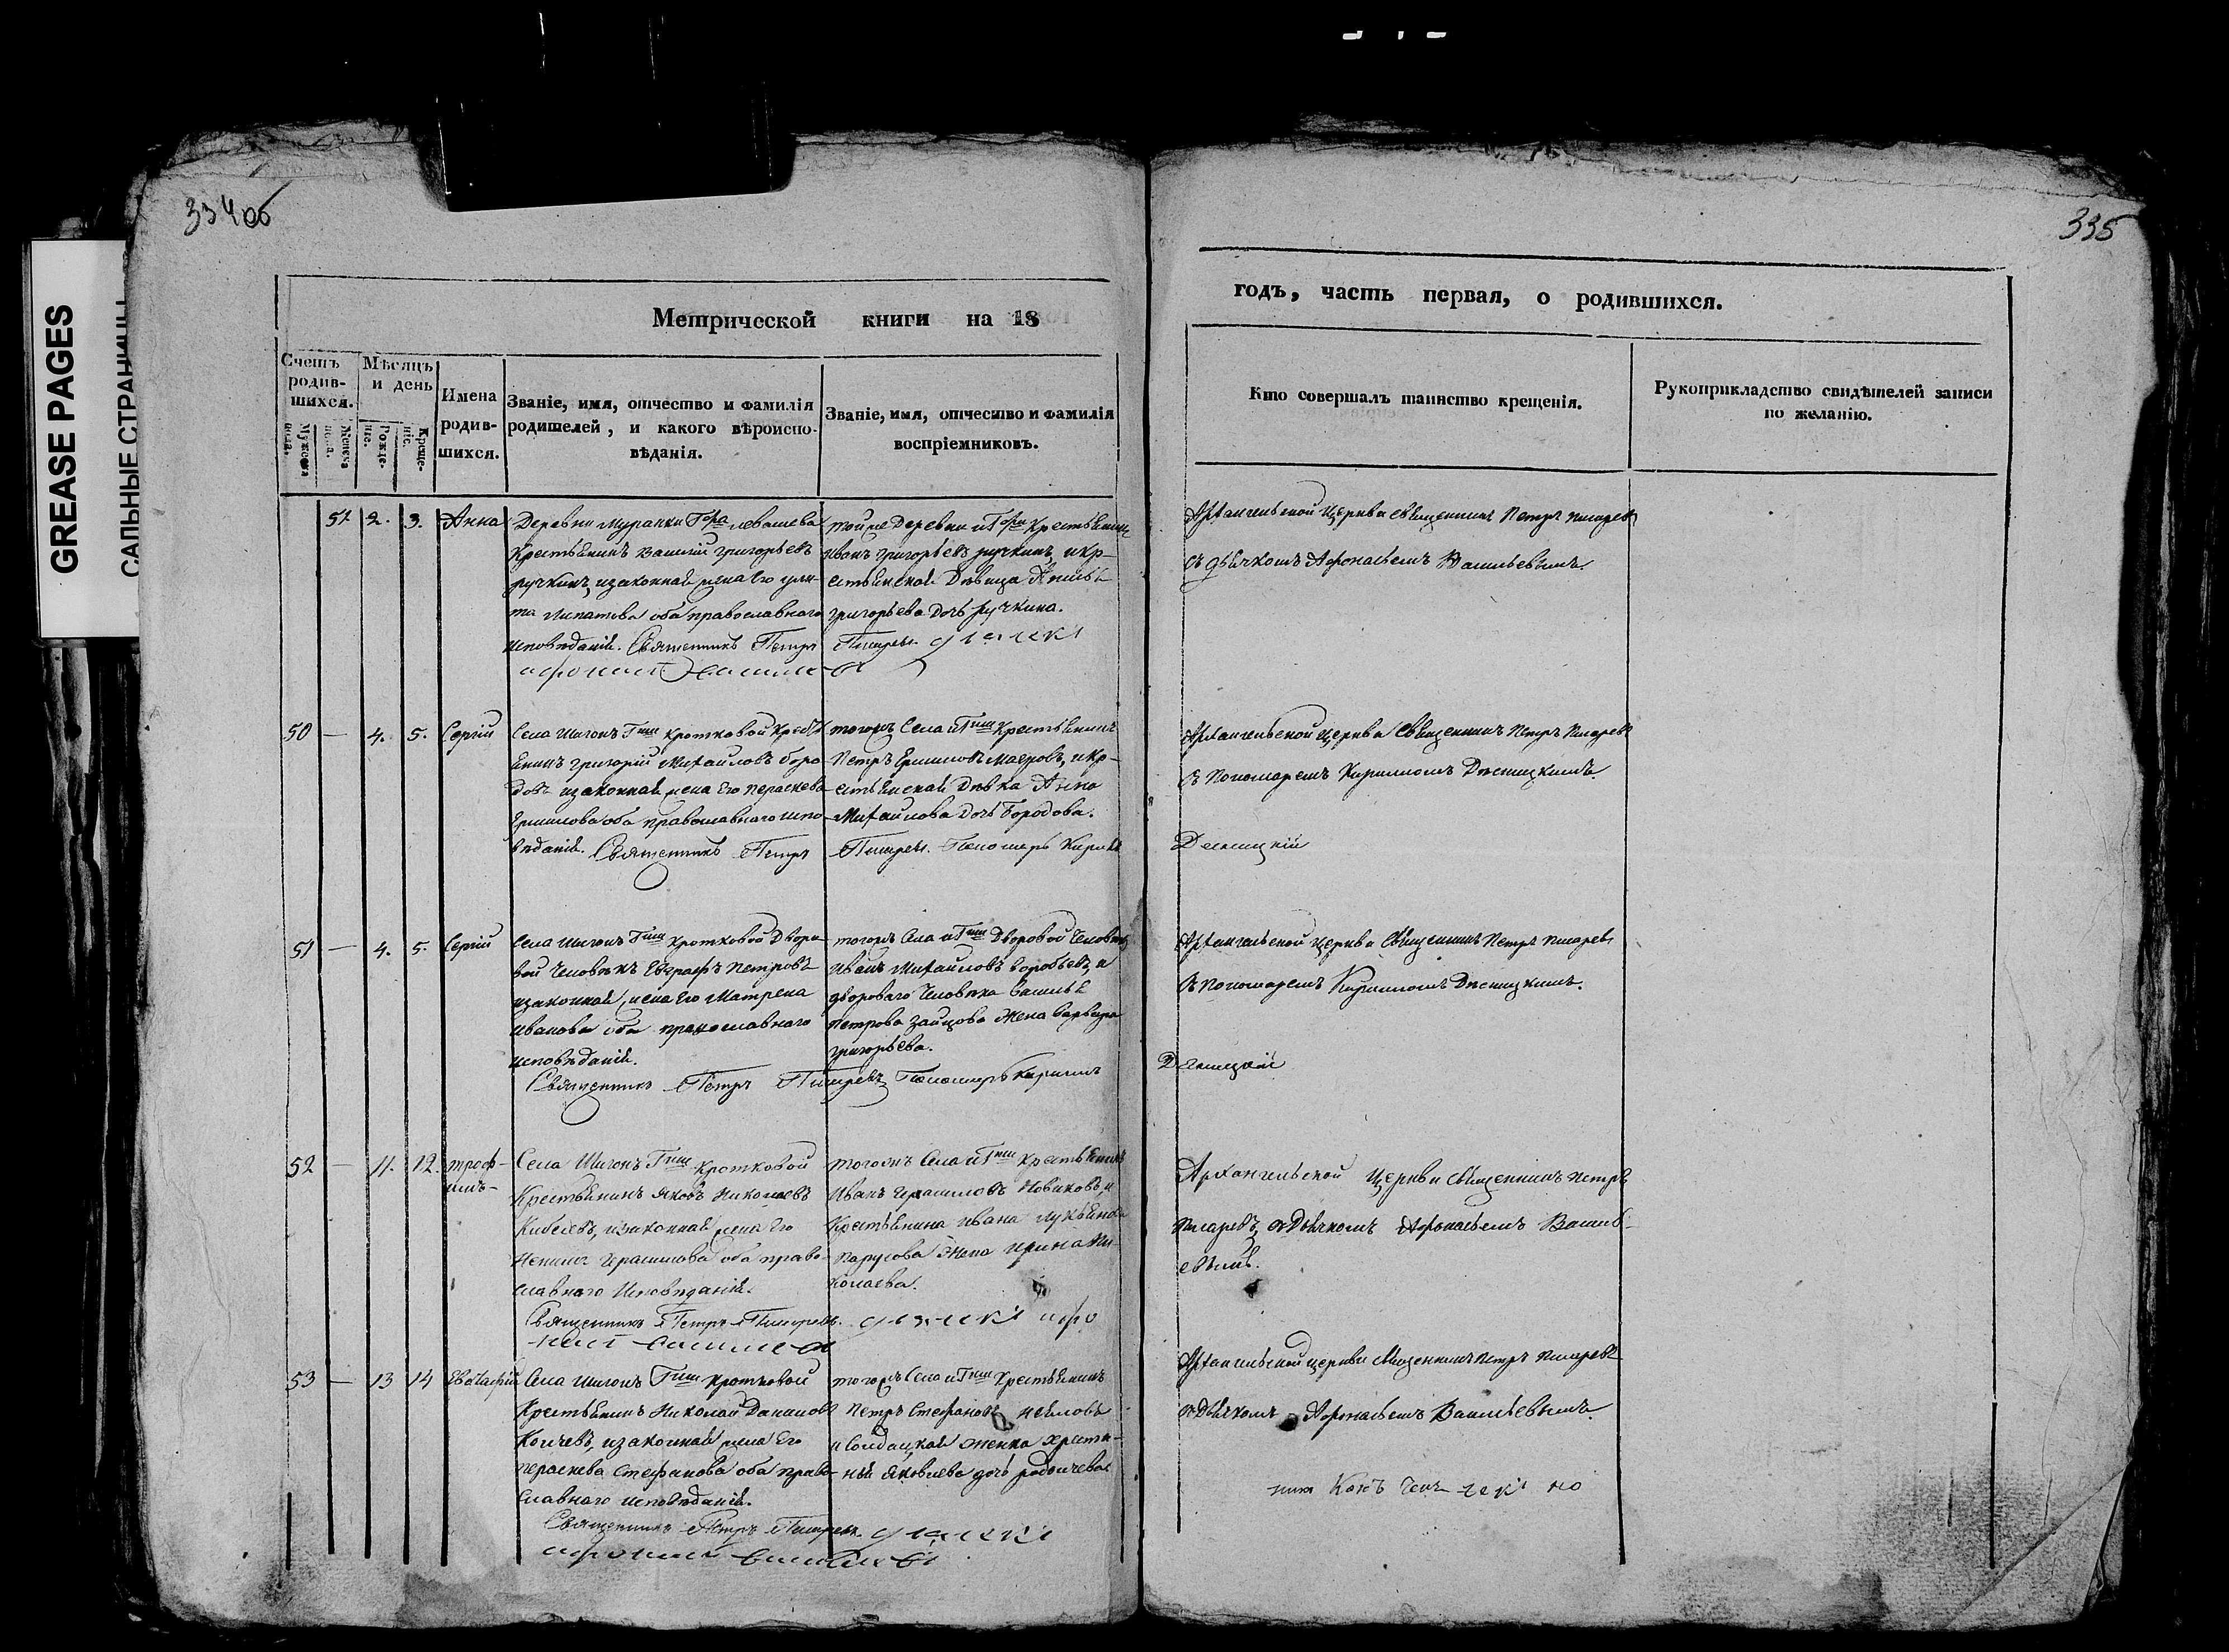 GREASE PAGES
САЛЬНЫЕ СТРАНИЦЫ
334 об
335
Метрической книги на 18
годъ, часть первая, о родившихся.
Счетъ родив-шихся.
Мужеска пола.
Женска пола.
Мѣсяцъ и день
Рожде-нія.
Креще-нія.
Имена родив-шихся.
Званіе, имя, отчество и фамилія
родителей, и какого вѣроиспо-
вѣданія.
Званіе, имя, отчество и фамилія
воспріемниковъ.
Кто совершалъ таинство крещенія.
Рукоприкладство свидѣтелей записи
по желанію.
51 2. 3. Анна
Деревни Муранки Гора Левашева
Крестьянинъ Василій Григорьевъ
ручкинъ, изаконная жена Его
Липатова оба православнаго
исповѣданія. Священникъ Петръ
тойже Деревни и Гори Крестьянинъ
Иванъ Григорьевъ ручкинъ, икр-
естьянская Дѣвица
григорьева дочь ручкина.
Писаревъ. дьячекъ
Архангельской Церкви священникъ Петръ Писаревъ
съ дьячкомъ Афонасьемъ Васильевымъ
50 — 4. 5. Сергій
Села Шигонъ Гжи Кротковой Крест
янинъ Григорій Михайловъ боро
довъ изаконная жена Его параскева
Ермилова оба православнаго испо
вѣданія. Священникъ Петръ
тогожъ Села и Гжи Крестьянинъ
Петръ Ермиловъ Маеровъ, икр-
естьянская Дѣвка Анна
Михайлова Дочь Бородова.
Писаревъ. Пономарь Кирилъ
Архангельской Церкви Священникъ Петръ Писаревъ
съ Пономаремъ Кириломъ Десницкимъ
Десницкій
51 — 4. 5. Сергій
Села Шигонъ Гжи Кротковой Дворо
вой Человѣкъ Евграфъ Петровъ
изаконная жена Его Матрена
Иванова оба православнаго
исповѣданія.
Священникъ Петръ Писаревъ Пономарь Кирилъ
тогожъ Села и Гжи Дворовой Человѣкъ
Иванъ Михайловъ Воробьевъ, и
двороваго Человѣка Василья
Петрова Зайцова Жена Варвара
григорьева.
Архангельской церкви Священникъ Петръ Писаревъ
съ Пономаремъ Кириломъ Десницкимъ.
Десницкій
52 — 11. 12. троф-имъ-
Села Шигонъ Гжи Кротковой
Крестьянинъ Яковъ Николаевъ
изаконная жена Его
Герасимова оба право-
славнаго Исповѣданія.
Священникъ Петръ Писаревъ. дьячекъ афо
тогожъ Села и Гжи Крестьянинъ
Иванъ Герасимовъ Новиковъ, и
Крестьянина Ивана Лукьянова
Парусова Жена Ирина Ни-
колаева.
Архангельской Церкви Священникъ Петръ
Писаревъ, съ Дьячкомъ Афонасьемъ Василь-
евымъ.
53 — 13 14
Села Шигонъ Гжи Кротковой
Крестьянинъ Николай Даниловъ
изаконная жена Его
параскева Стефанова оба право
славнаго исповѣданія.
Священникъ Петръ Писаревъ. дьячекъ
тогожъ Села и Гжи Крестьянинъ
Петръ Стефановъ
и Солдацкая женка
Яковлева дочь
Архангельской церкви священникъ Петръ Писаревъ
съ Дьячкомъ Афонасьемъ Васильевымъ.